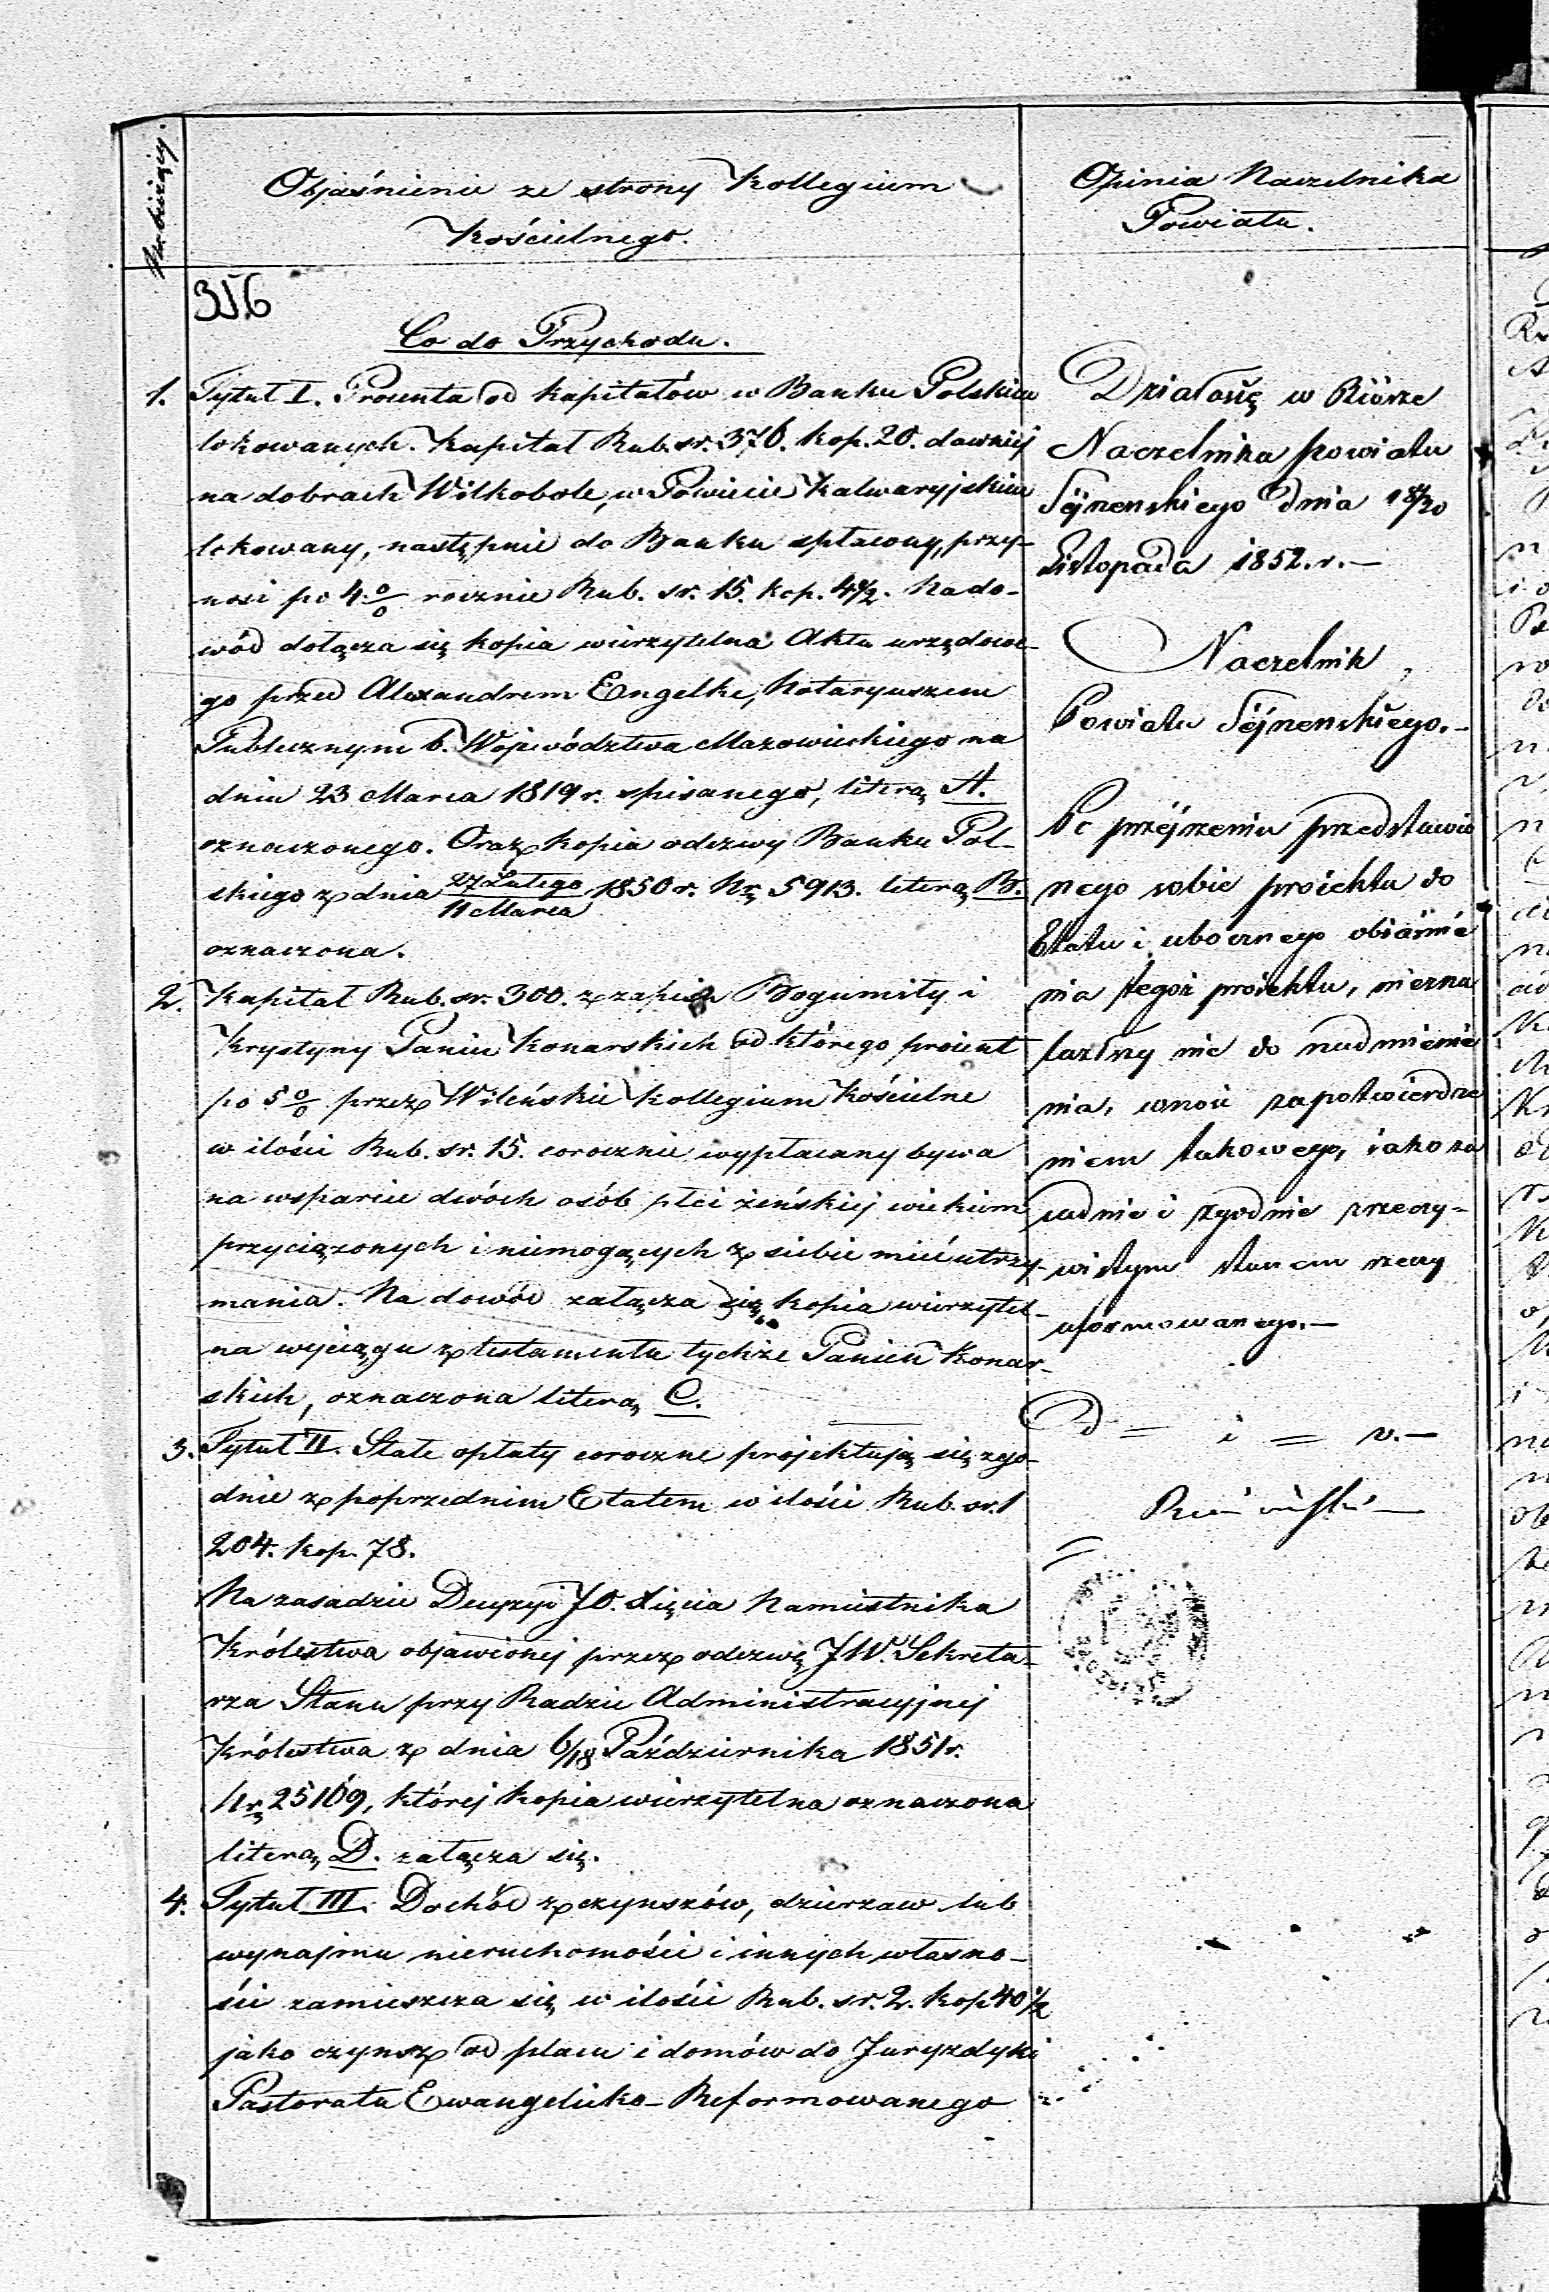 Nr bieżący.
Objaśnienie ze strony Kollegium
Kościelnego.
356
Co do Przychodu.
1. Tytuł I. Procenta od kapitałów w Banku Polskim
lokowanych. Kapitał Rub. sr. 376. kop. 20. dawniej
na dobrach Wilkobole, w Powiecie Kalwaryjskim
lokowany, następnie do Banku spłacony, przy-
nosi po 4 0/0 rocznie Rub. sr. 15. kop. 4 1/2. Na do-
wód dołącza się kopia wierzytelna Aktu urzędowe-
go przed Alexandrem Engelke, Notaryuszem
Publicznym b. Województwa Mazowieckiego na
dniu 23 Marca 1819 r. spisanego, literą A.
oznaczonego. Oraz kopia odezwy Banku Pol-
skiego z dnia 27 Lutego/11 Marca 1850 r. Nr 5913. literą B.
oznaczona.
2. Kapitał Rub. sr. 300. z zapisu Bogumiły i
Krystyny Panien Konarskich od którego procent
po 5 0/0 przez Wileńskie Kollegium Kościelne
w ilości Rub. sr. 15. corocznie wypłacany bywa
na wsparcie dwóch osób płci żeńskiej wiekiem
przyciążonych i niemogących z siebie mieć utrzy-
mania. Na dowód załącza się kopia wierzytel-
na wyciągu z testamentu tychże Panien Konar-
skich, oznaczona literą C.
3. Tytuł II. Stałe opłaty coroczne projektują się zgo-
dnie z poprzednim Etatem w ilości Rub. sr.
204. kop. 78.
Na zasadzie Decyzyi JO. Xięcia Namiestnika
Królestwa objawionej przez odezwę JW. Sekreta-
rza Stanu przy Radzie Administracyjnej
Królestwa z dnia 6/18 Października 1851 r.
Nr 25169, której kopia wierzytelna oznaczona
literą D. załącza się.
4. Tytuł III. Dochód z czynszów, dzierżaw lub
wynajmu nieruchomości i innych własno-
ści zamieszcza się w ilości Rub. sr. 2. kop 40 1/2
jako czynsz od placu i domów do Juryzdyki
Pastoratu Ewangelicko-Reformowanego
Opinia Naczelnika
Powiatu.
Działo się w Biórze
Naczelnika powiatu
Sejnenskiego dnia 18/30
Listopada 1852. r.-
Naczelnik
Powiatu Sejnenskiego.-
Po przejrzeniu przedstawio
nego sobie projektu do
Etatu i ubocznego obiaśnie
nia tegoż projektu, niezna
lazłszy nic do nadmienie
nia, wnosi zapotwierdze
niem takowego, iako za
sadnie i zgodnie z rzeczy-
wistym stanem rzeczy
uformowanego.-